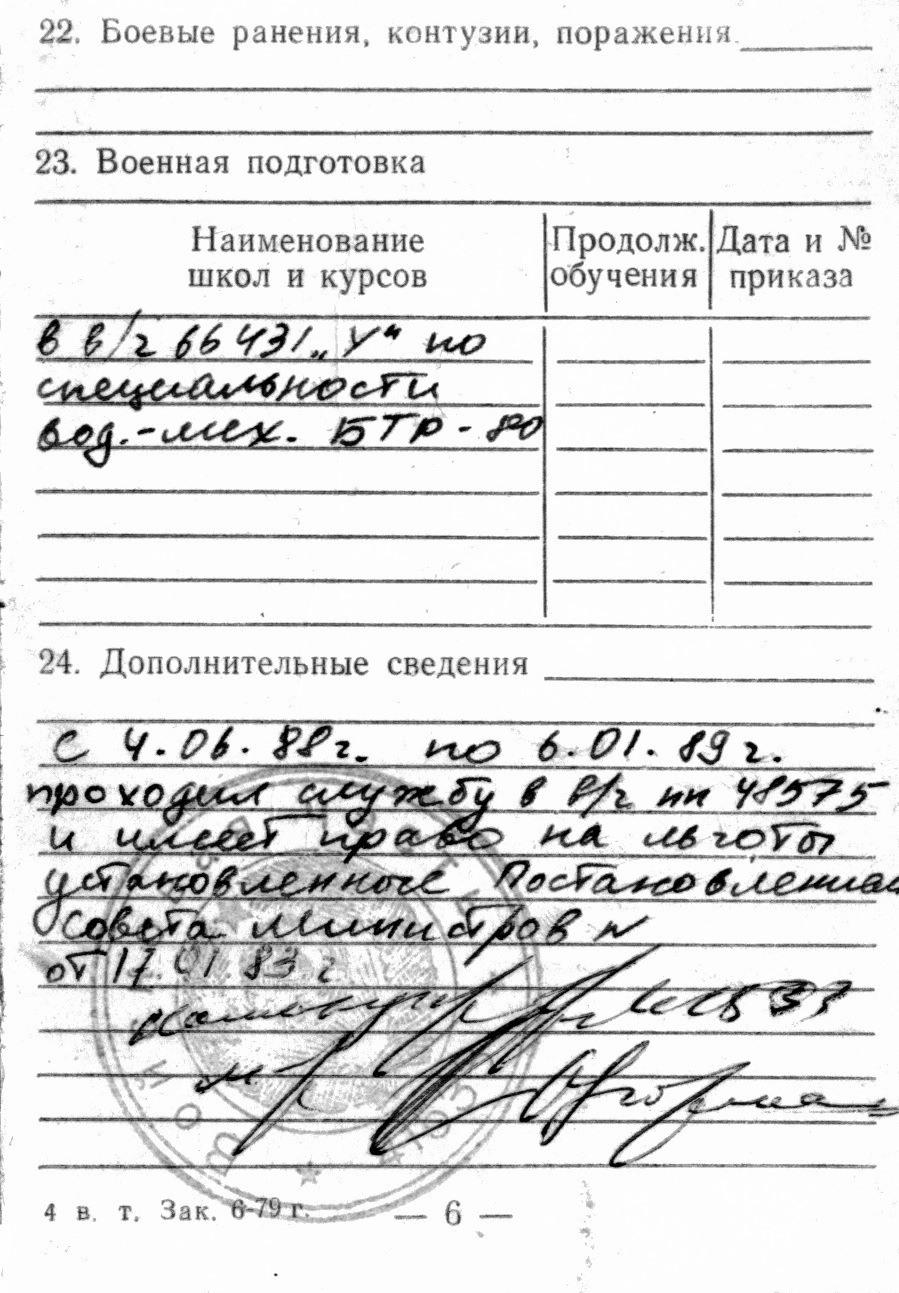 22. Боевые ранения, контузии, поражения
23. Военная подготовка
Наименование школ и курсов
Продолж. обучения
Дата и № приказа
в в/ч 66431 „У" по
специальности
вод.-мех. БТР-80
24. Дополнительные сведения
с 4.06.88г. по 6.01.89г.
проходил службу в в/ч пп 48575
и имеет право на льготы
установленные Постановлением
Совета Министров N
от 17.01.83 г
4 в. т. Зак. 6-79 г.
— 6 —